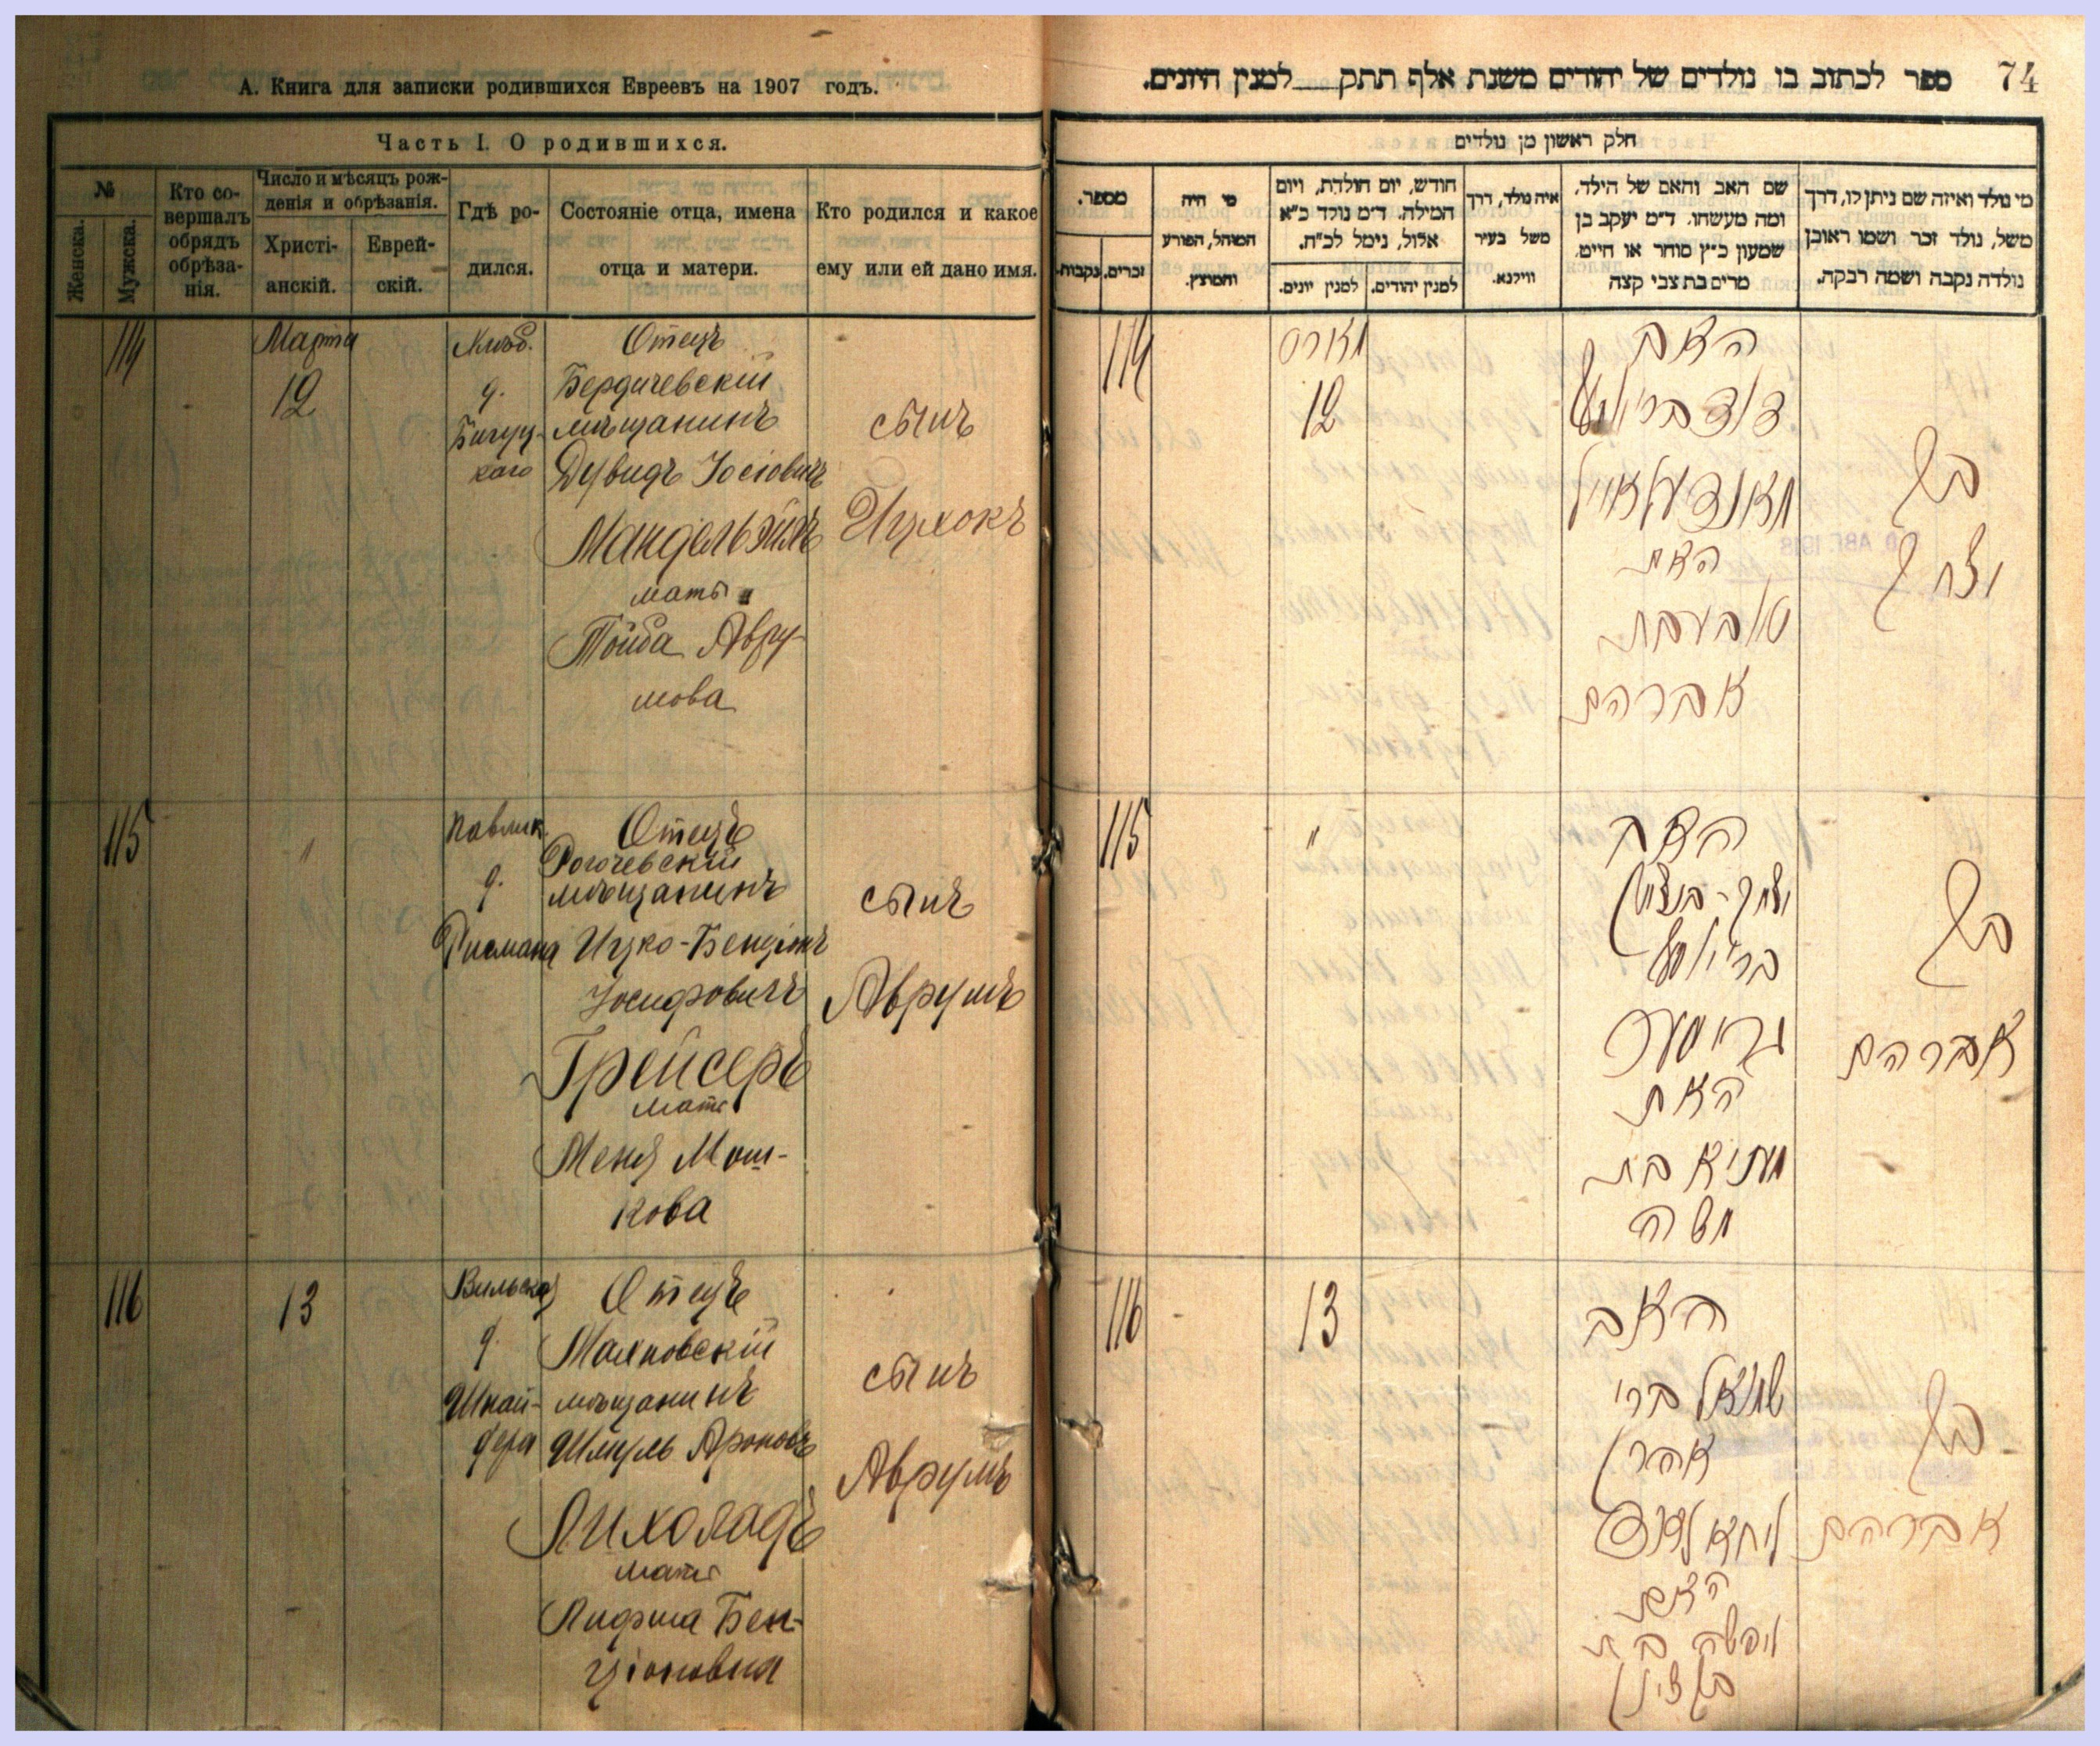 А. Книга для записки родившихся Евреевъ на 1907 годъ.
Часть I. О родившихся.
№
Женска.
Мужска.
Кто со-
вершалъ
обрядъ
обрѣза-
нія.
Число и мѣсяцъ рож-
денія и обрѣзанія.
Христі-
анскій.
Еврей-
скій.
Гдѣ ро-
дился.
Состояніе отца, имена
отца и матери.
Кто родился и какое
ему или ей дано имя.
114
Марта
12
д.
Отецъ
Бердичевскій
мѣщанинъ
Дувидъ Іосіовичъ
Мандельэйль
мать
Тойба Авру-
мова
сынъ
Ицхокъ
115
"
Павлик.
д.
Рисмана
Отецъ
Рогочевскій
мѣщанинъ
Ицко-Бенціонъ
Іосифовичъ
Грейсеръ
мать
Меня Мош-
кова
сынъ
Аврумъ
116
13
Вильская
д.
Шнай-
дера
Отецъ
Маяновскій
мѣщанинъ
Шмуль Ароновъ
Лихоладъ
мать
Лифша Бен-
ціоновна
сынъ
Аврумъ
74
ספר לכתוב בו נולדים של יהודים משנת אלף תתק לסנין היונים.
חלק ראשון מן נולדים
מספר.
זכרים.
נקבות.
מי היה
המוהל, הפורע
והמוצץ.
חודש, יום הולדת, ויום
המילה. ד״מ נולד כ״א
אלול, נימל לכ״ח.
למנין יהודים.
למנין יונים.
איה נולד, דרך
משל בעיר
ווילנא.
שם האב והאם של הילד,
ומה מעשהו. ד״מ יעקב בן
שמעון כ״ץ סוחר או חייט,
מרים בת צבי קצה
מי נולד ואיזה שם ניתן לו, דרך
משל, נולד זכר ושמו ראובן
נולדה נקבה ושמה רבקה.
114
מארס
12
האב
דוד בר יוסף
מאנדעלאייל
האם
טאבע בת
אברהם
בן
יצחק
115
"
האב
יצחק-בנציון
בר יוסף
גרייסער
האם
מעניא בת
משה
בן
אברהם
116
13
האב
שמואל בר
אהרן
ליחאלאד
האם
ליפשה בת
בן ציון
בן
אברהם